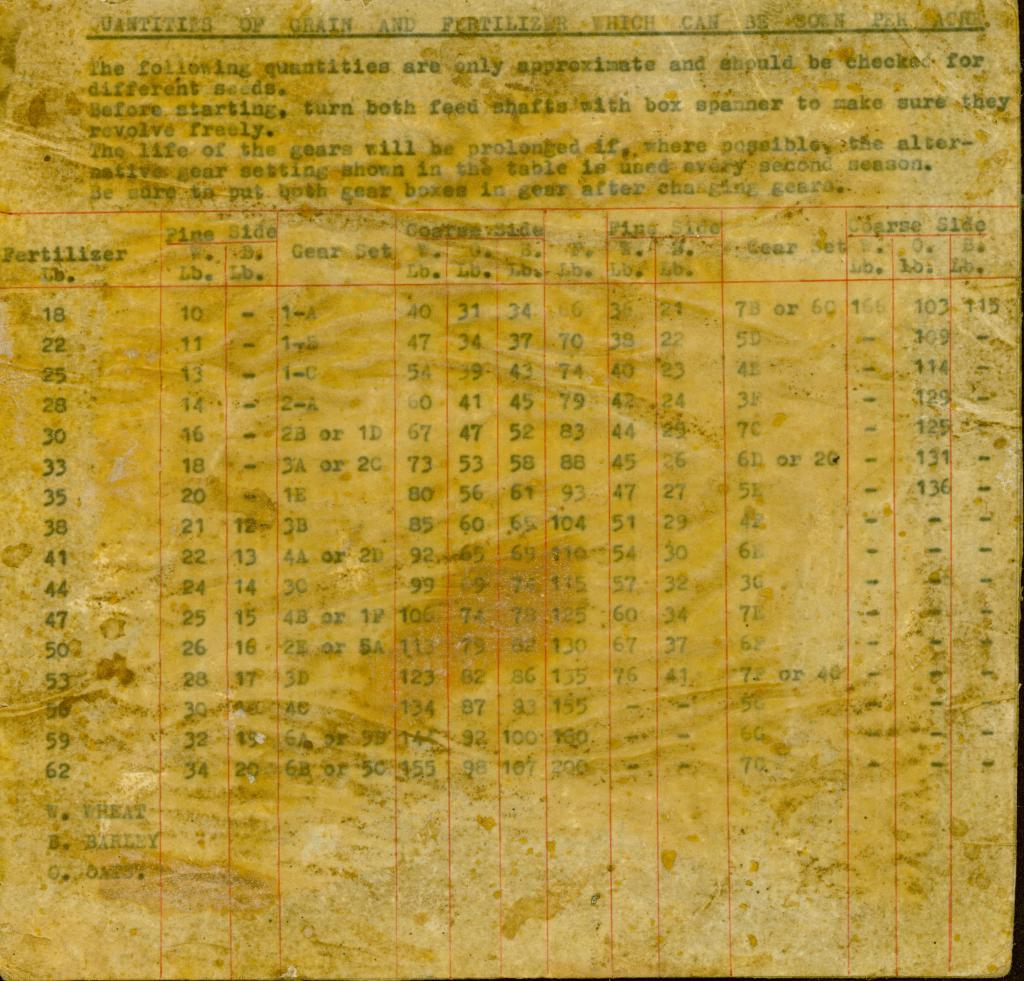 QUANTITIES OF GRAIN AND FERTILIZER WHICH CAN BE SOWN PER ACRE.
The following quantities are only approximate and should be checked for
different seeds.
Before starting, turn both feed shafts with box spanner to make sure they
revolve freely.
The life of the gears will be prolonged if, where possible, the alter-
native gear setting shown in the table is used every second season.
Be sure to put both gear boxes in gear after changing gears.
Fine Side Coarse Side Fine Side Coarse Side
Fertilizer W. B. Gear Set W. O. B. F. W. B. Gear Set W. O. B.
Lb. Lb. Lb. Lb. Lb. Lb. Lb. Lb. Lb. Lb. Lb. Lb.
18 10 - 1-A 40 31 34 66 36 21 7B or 6C 166 103 115
22 11 - 1-B 47 34 37 70 38 22 5D - 109 -
25 13 - 1-C 54 39 43 74 40 23 4E - 114 -
28 14 - 2-A 60 41 45 79 42 24 3F - -
30 16 - 2B or 1D 67 47 52 83 44 7C - 125 -
33 18 - 3A or 2C 73 53 58 88 45 26 6D or 2G - 131 -
35 20 - 1E 80 56 61 93 47 27 5E - 136 -
38 21 12 3B 85 60 65 104 51 29 4F - - -
41 22 13 4A or 2D 92 65 69 110 54 30 6E - - -
44 24 14 3C 99 69 74 115 57 32 3G - - -
47 25 15 4B or 1F 106 74 78 125 60 34 7E - - -
50 26 16 2E or 5A 113 79 82 130 67 37 6F - - -
53 28 17 3D 123 82 86 135 76 41 7F or 4G - - -
56 30 4C 134 87 93 155 - - 5G - - -
59 32 19 6A or 5B 92 100 180 - - 6G - - -
62 34 20 6B or 5C 155 98 107 200 - - 7G - - -
W. WHEAT
B. BARLEY
O. OATS.